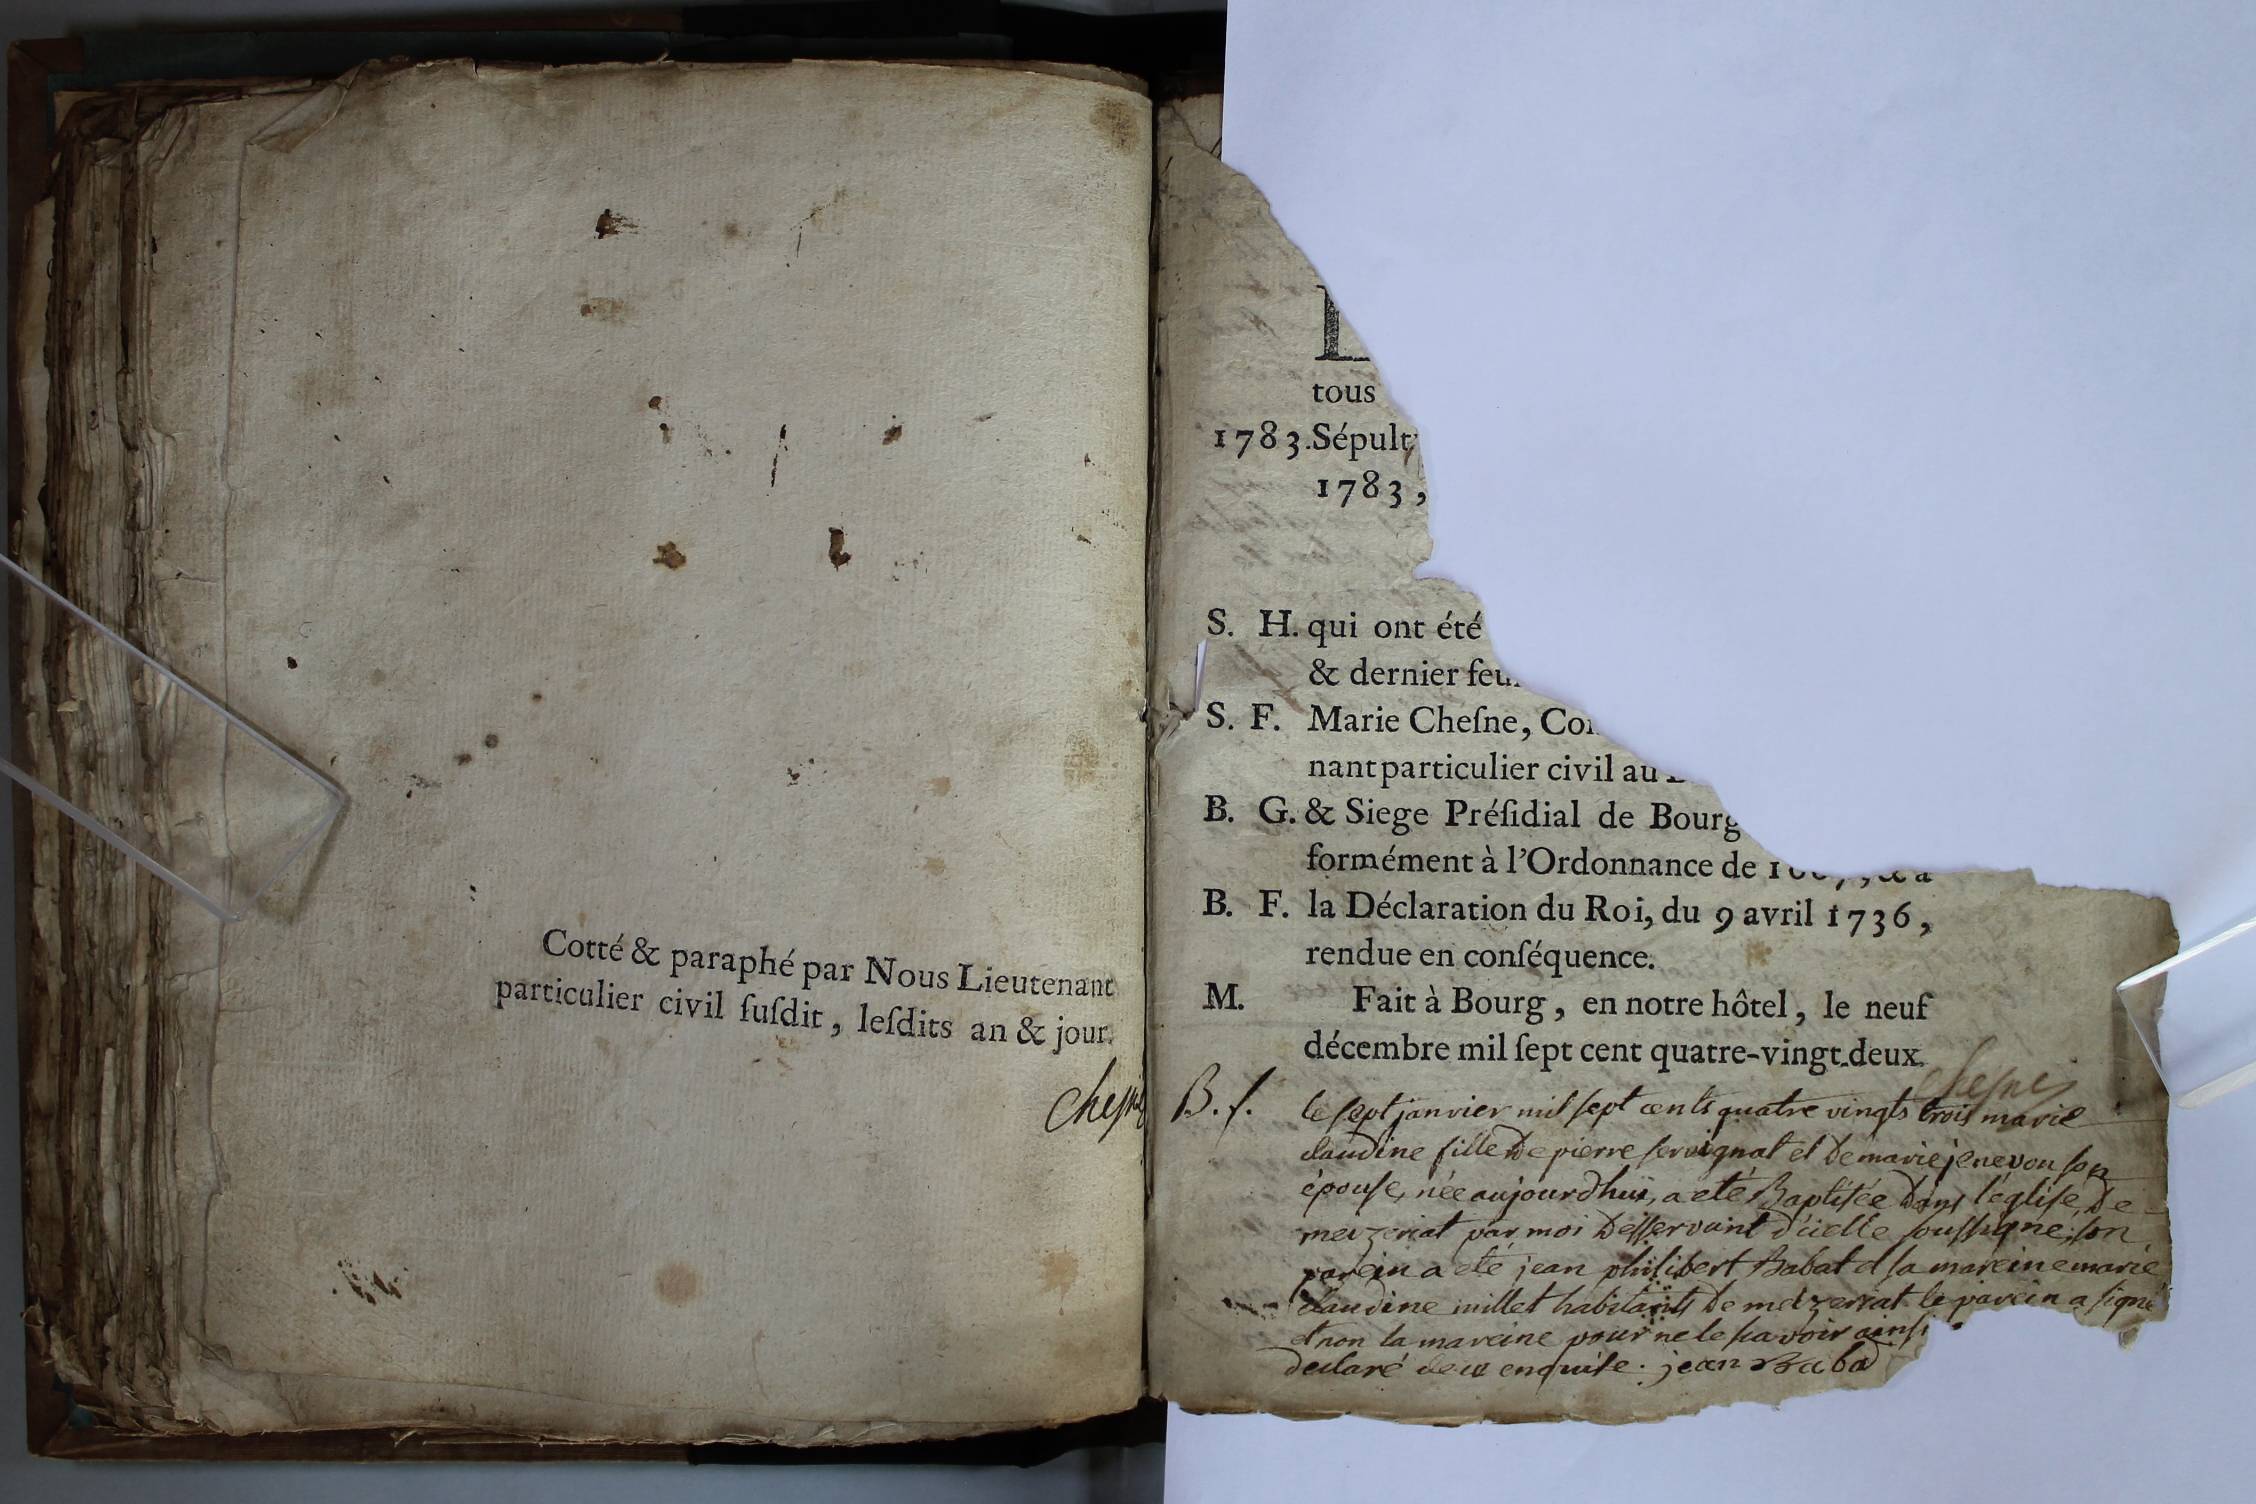 Cotté & paraphé par Nous Lieutenant
particulier civil ſuſdit, leſdits an & jour.
Cheſne
L
tous
1783. Sépult
1783,
S. H. qui ont été
& dernier feu
S. F. Marie Cheſne, Co
nant particulier civil au
B. G. & Siege Préſidial de Bourg
formément à l'Ordonnance de & a
B. F. la Déclaration du Roi, du 9 avril 1736,
rendue en conſéquence.
M. Fait à Bourg, en notre hôtel, le neuf
décembre mil ſept cent quatre-vingt-deux.
Cheſne
B. f. le ſept janvier mil ſept cents quatre vingts trois marie
claudine fille de pierre ſervignat et de marie jenevon ſon
épouſe, née aujourdhui, a eté Baptiſée dans l'égliſe de
mezeriat par moi deſſervant d'icelle ſouſſigné; ſon
parein a eté jean philibert Babat et ſa mareine marie
claudine millet habitants de mezeriat le parein a ſigné
et non la mareine pour ne le ſavoir ainſi
declaré enquiſe. jean Babad